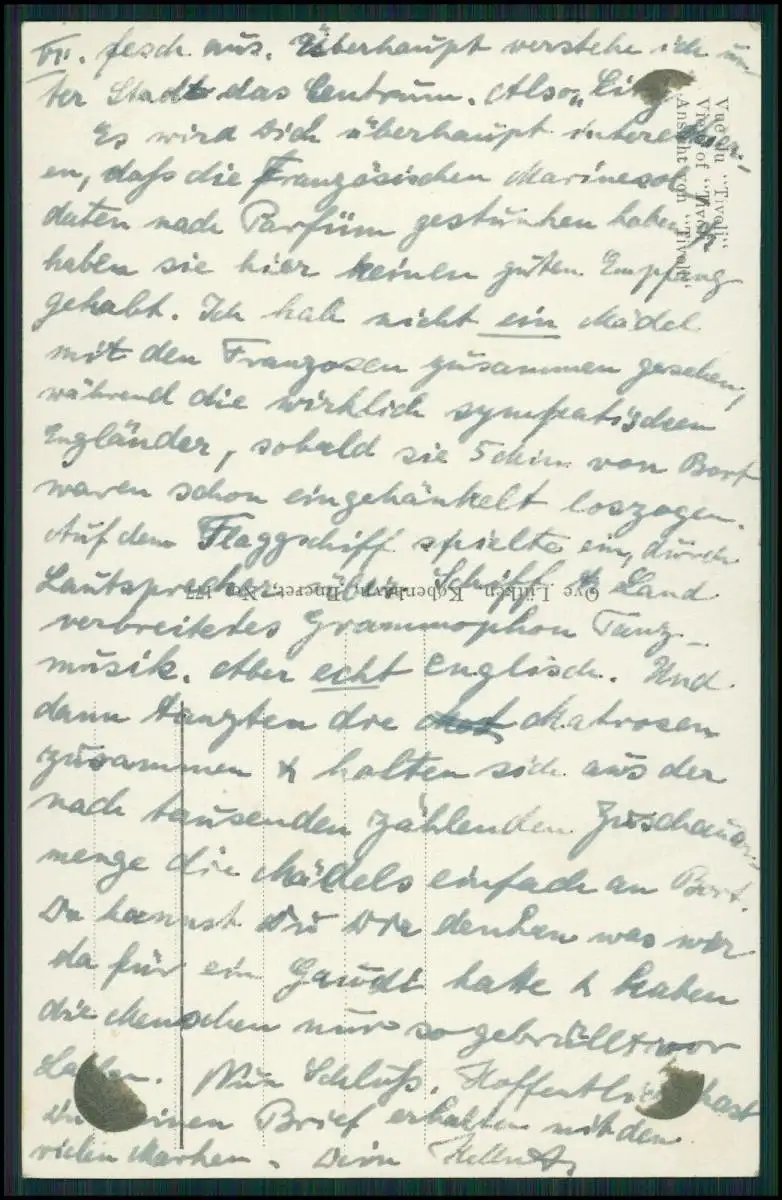 VII. fesch aus. Überhaupt verstehe ich un-
ter Stadt das Centrum. Also „City
Es wird Dich überhaupt interessier-
en, daß die Französischen Marinesol-
daten nach Parfüm gestunken haben &
haben sie hier keinen guten Empfang
gehabt. Ich hab nicht ein Mädel
mit den Franzosen zusammen gesehen,
während die wirklich sympatischen
Engländer, sobald sie von Bort
waren schon eingehänkelt loszogen.
Auf dem Flaggschiff spielte ein, durch
Lautsprecher über Schiff & Land
verbreitetes Grammophon Tanz-
musik. Aber echt Englisch. Und
dann tanzten die Matrosen
zusammen & holten sich aus der
nach tausenden zählenden Zuschauer-
menge die Mädels einfach an Bort.
Du kannst Du Dir denken was wir
da für ein Gaudi hatte & haben
die Menschen nur so gebrüllt vor
Lachen. Nun Schluß. Hoffentlich hast
Du meinen Brief erhalten mit den
vielen Marken. Dein
Vue du "Tivoli"
View of "Tivoli"
Ansicht von "Tivoli"
Ove Lütken, København, Eneret, No. 177